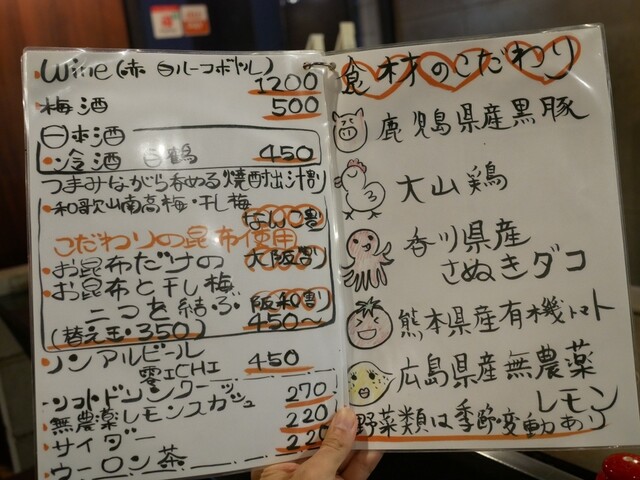 Wine(赤 白ハーフボトル)
1200
梅酒 500
日本酒
冷酒 白鶴 450
つまみながら呑める焼酎出汁割
和歌山南高梅・干し梅
なんこ割
こだわりの昆布使用
お昆布だけの 大阪割
お昆布と干し梅
二つを結ぶ 阪和割
(替え玉・350) 450〜
ノンアルビール
零ICHI 450
ソフトドリンク
無農薬レモンスカッシュ 270
サイダー 220
ウーロン茶 220
食材のこだわり
鹿児島県産黒豚
大山鶏
香川県産
さぬきダコ
熊本県産有機トマト
広島県産無農薬
レモン
野菜類は季節・変動あり